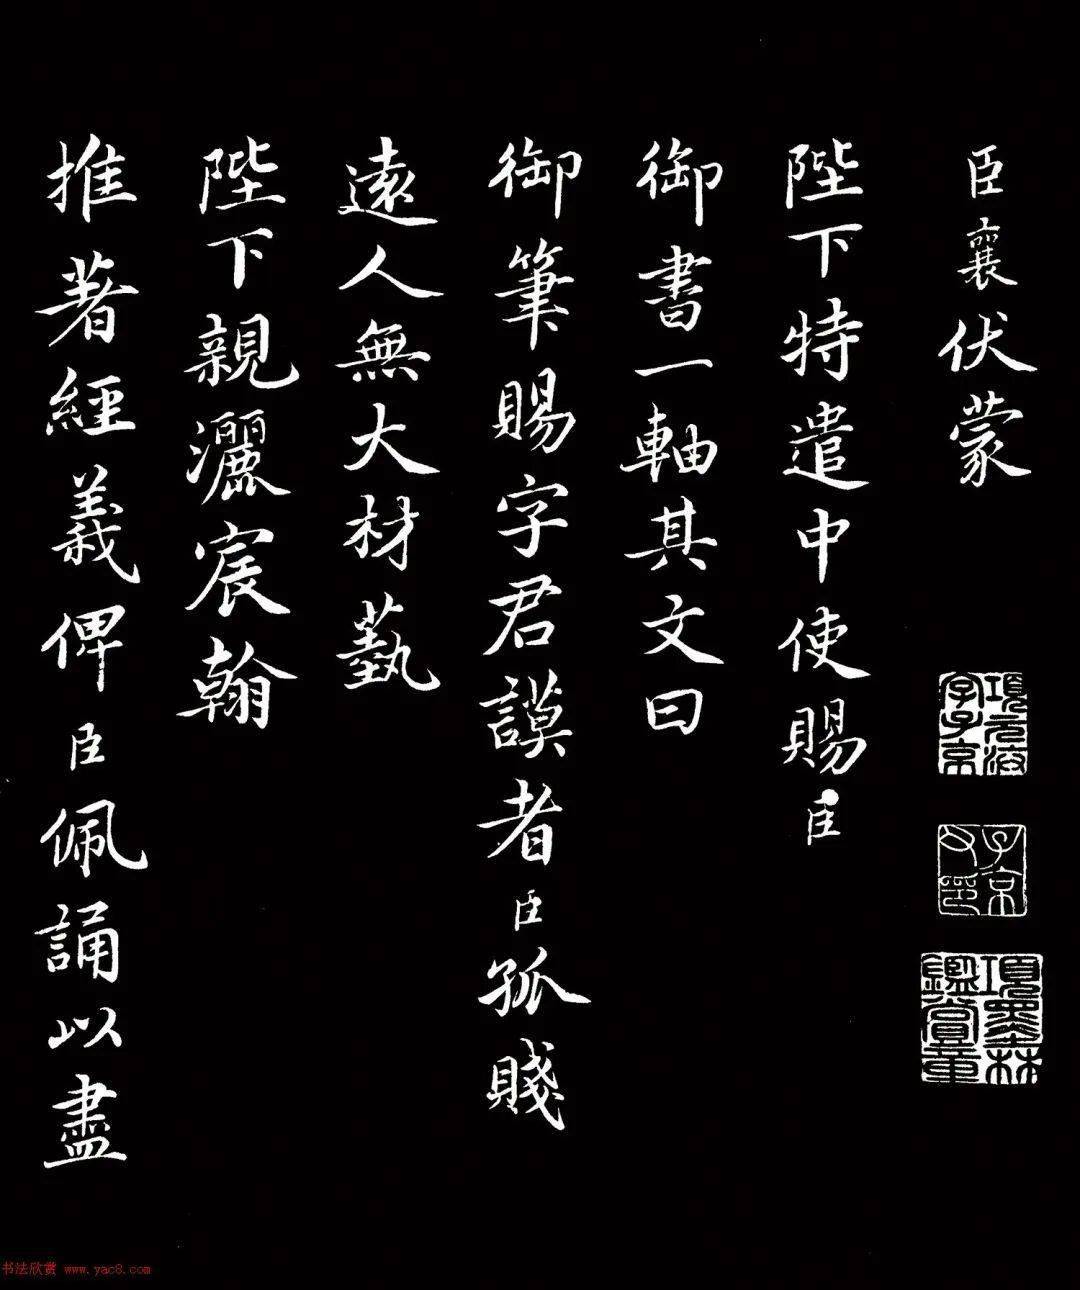 臣襄伏蒙
陛下特遣中使賜臣
御書一軸其文曰
御筆賜字君謨者臣孤賤
遠人無大材藝
陛下親灑宸翰
推著經義俾臣佩誦以盡
項元汴
字子京
子京
父印
項墨林
鑑賞章
书法欣赏 www.yac8.com